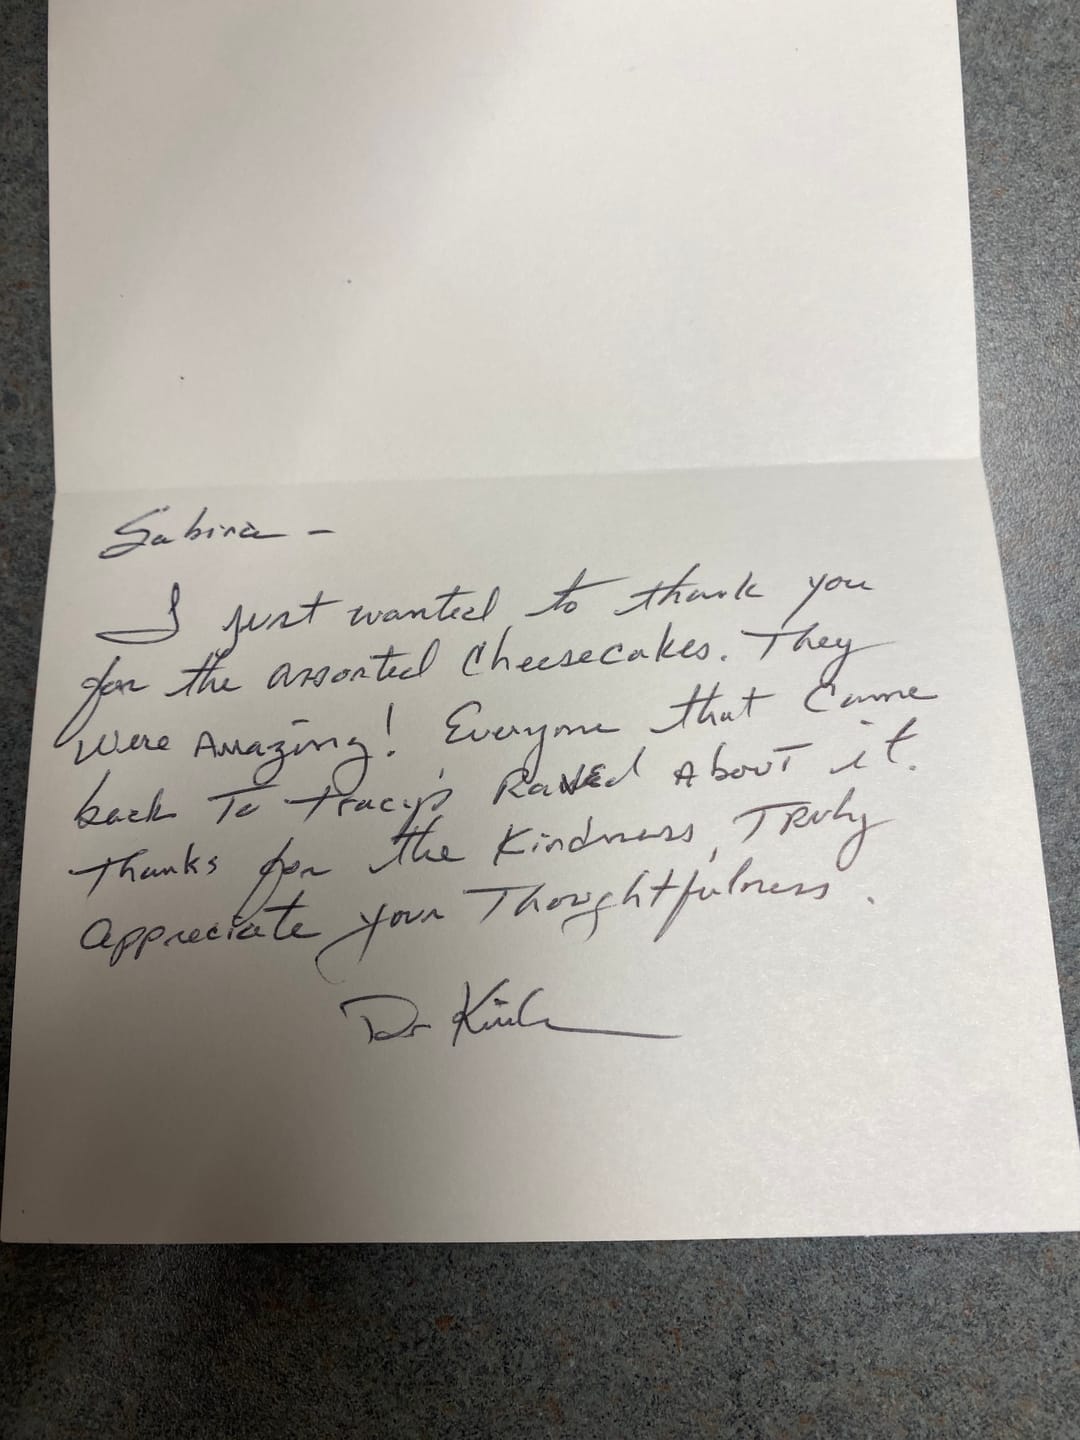 Sabina -
I just wanted to thank you
for the assorted Cheesecakes. They
were Amazing! Everyone that came
back To Tracy's RaVEd About it.
Thanks for the Kindness, TRuly
Appreciate your Thoughtfulness.
Dr